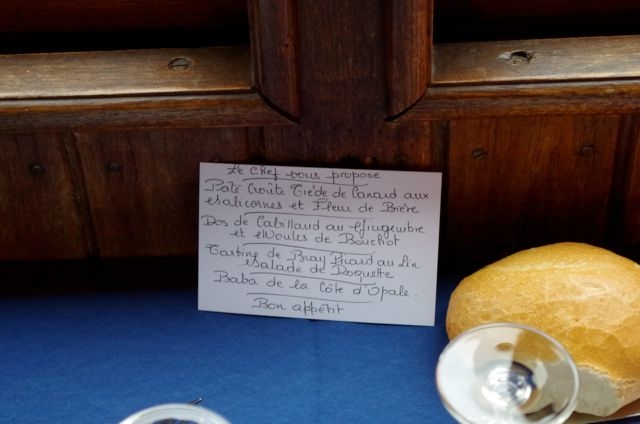 Le Chef vous propose
Pâté Croûte Tiède de Canard aux
Salicornes et Fleur de Bière
Dos de Cabillaud au Gingembre
et Moules de Bouchot
Tartine de Bray Picard au Lin
Salade de Roquette
Baba de la Côte d'Opale.
Bon appétit